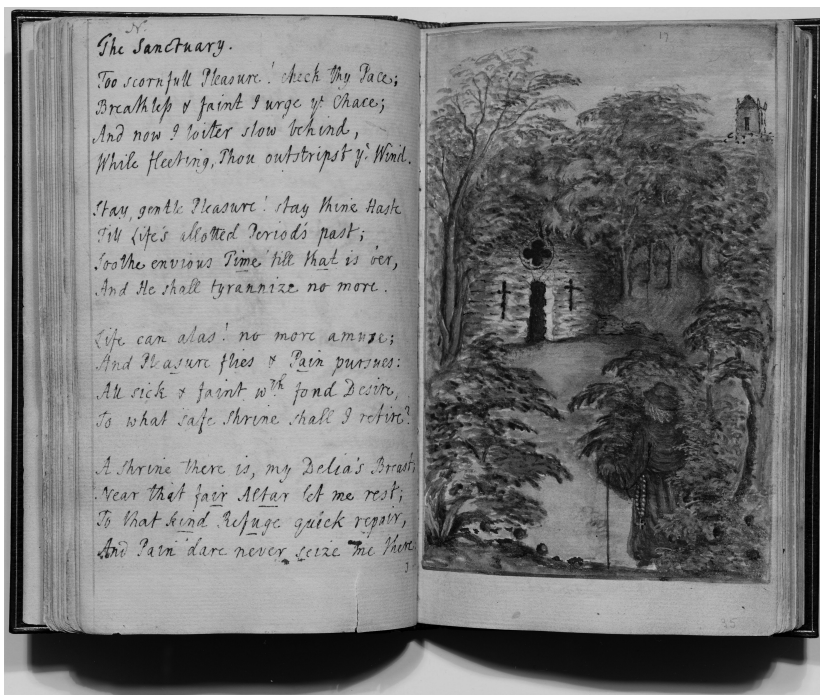 N.
The Sanctuary.
Too scornfull Pleasure! check thy Pace;
Breathless & faint I urge ye Chace;
And now I loiter slow behind,
While fleeting, Thou outstripst ye Wind.
Stay, gentle Pleasure! stay thine Haste
Till Life's allotted Period's past;
Soothe envious Time 'till that is o'er,
And He shall tyrannize no more.
Life can alas! no more amuse;
And Pleasure flies & Pain pursues:
All sick & faint wth fond Desire,
To what safe Shrine shall I retire?
A Shrine there is, my Delia's Breast;
Near that fair Altar let me rest;
To that kind Refuge quick repair,
And Pain dare never seize me there